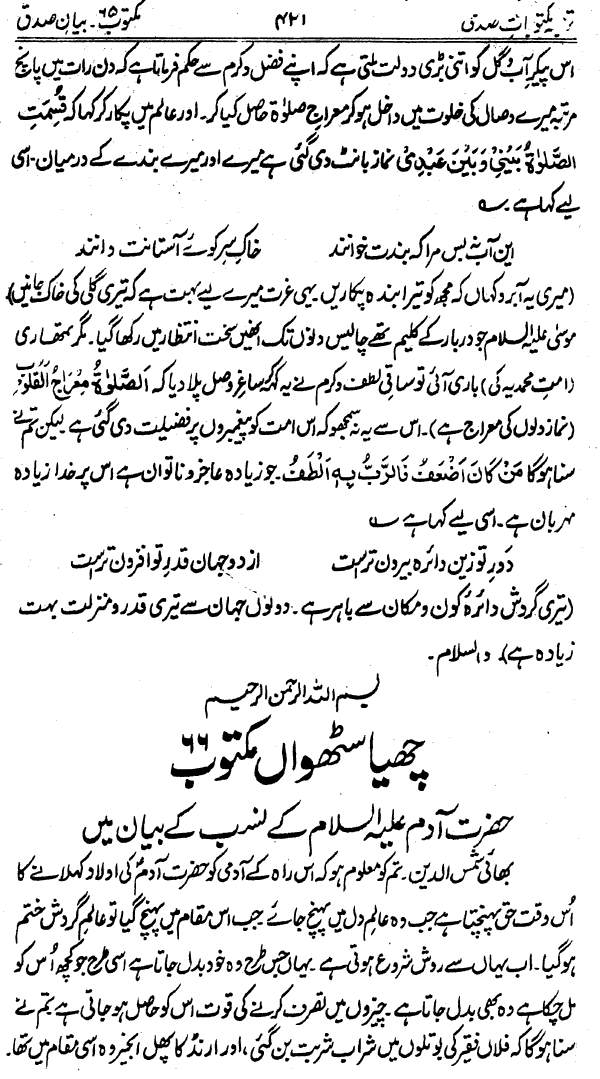 مکتوبات صدی ۴۲۱ مکتوب ۶۵۔ بیان صدق
اس پیکرِ آب و گل کو اتنی بڑی دولت ملتی ہے کہ اپنے فضل و کرم سے حکم فرماتا ہے کہ دن رات میں پانچ
مرتبہ میرے وصال کی خلوت میں داخل ہو کر معراجِ صلوٰۃ حاصل کیا کر۔ اور عالم میں پکار کر کہا کہ قُسِمَتِ
الصَّلٰوۃُ بَیْنِیْ وَبَیْنَ عَبْدِیْ نماز بانٹ دی گئی ہے میرے اور میرے بندے کے درمیان۔ اسی
لیے کہا ہے ؎
این آب نہ بس مرا کہ بندت خوانند خاکِ سرِ کوئے آستانت دانند
(میری یہ آبرو کہاں کہ مجھ کو تیرا بندہ پکاریں۔ یہی عزت میرے لیے بہت ہے کہ تیری گلی کی خاک جانیں)
موسیٰ علیہ السلام جو دربار کے کلیم تھے چالیس دنوں تک انھیں سخت انتظار میں رکھا گیا۔ مگر تمھاری
(امتِ محمدیہ کی) باری آئی تو ساقی لطف و کرم نے یہ کہہ کر ساغرِ وصل پلا دیا کہ اَلصَّلٰوۃُ مِعْرَاجُ الْقُلُوْبِ
(نماز دلوں کی معراج ہے)۔ اس سے یہ نہ سمجھو کہ اس امت کو پیغمبروں پر فضیلت دی گئی ہے لیکن تم نے
سنا ہوگا مَنْ کَانَ اَضْعَفُ فَالرَّبُّ بِهٖ اَلْطَفُ۔ جو زیادہ عاجز و ناتواں ہے اس پر خدا زیادہ
مہربان ہے۔ اسی لیے کہا ہے ؎
دَورِ تو زین دائرہ بیرون ترست از دو جہان قدرِ تو افزون ترست
(تیری گردش دائرہ کون و مکان سے باہر ہے۔ دونوں جہان سے تیری قدر و منزلت بہت
زیادہ ہے)۔ والسلام۔
بسم اللہ الرحمن الرحیم
چھیاسٹھواں مکتوب ۶۶
حضرت آدم علیہ السلام کے نسب کے بیان میں
بھائی شمس الدین۔ تم کو معلوم ہو کہ اس راہ کے آدمی کو حضرت آدمؑ کی اولاد کہلانے کا
اُس وقت حق پہنچتا ہے جب وہ عالمِ دل میں پہنچ جائے۔ جب اس مقام میں پہنچ گیا تو عالمِ گردش ختم
ہوگیا۔ اب یہاں سے روش شروع ہوتی ہے۔ یہاں جس طرح وہ خود بدل جاتا ہے اسی طرح جو کچھ اُس کو
مل چکا ہے وہ بھی بدل جاتا ہے۔ چیزوں میں تصرف کرنے کی قوت اس کو حاصل ہو جاتی ہے۔ تم نے
سنا ہوگا کہ فلاں فقیر کی بوتلوں میں شراب شربت بن گئی، اور ارنڈ کا پھل انجیر وہ اسی مقام میں تھا۔